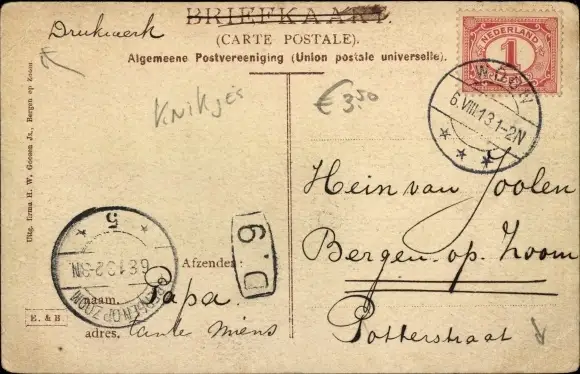 BRIEFKAART.
Drukwerk
(CARTE POSTALE).
Algemeene Postvereeniging (Union postale universelle).
NEDERLAND
1
WOUW
6.VIII.13.1-2N
Knikjes
€ 3,50
Uitg. firma H. W. Goosen Jz., Bergen op Zoom.
Hein van Joolen
Bergen op Zoom
Potterstraat
52
6.8.13.2-3N
BERGEN OP ZOOM
D.9
Afzender:
naam, Papa.
adres, tante Miens
E. & B.